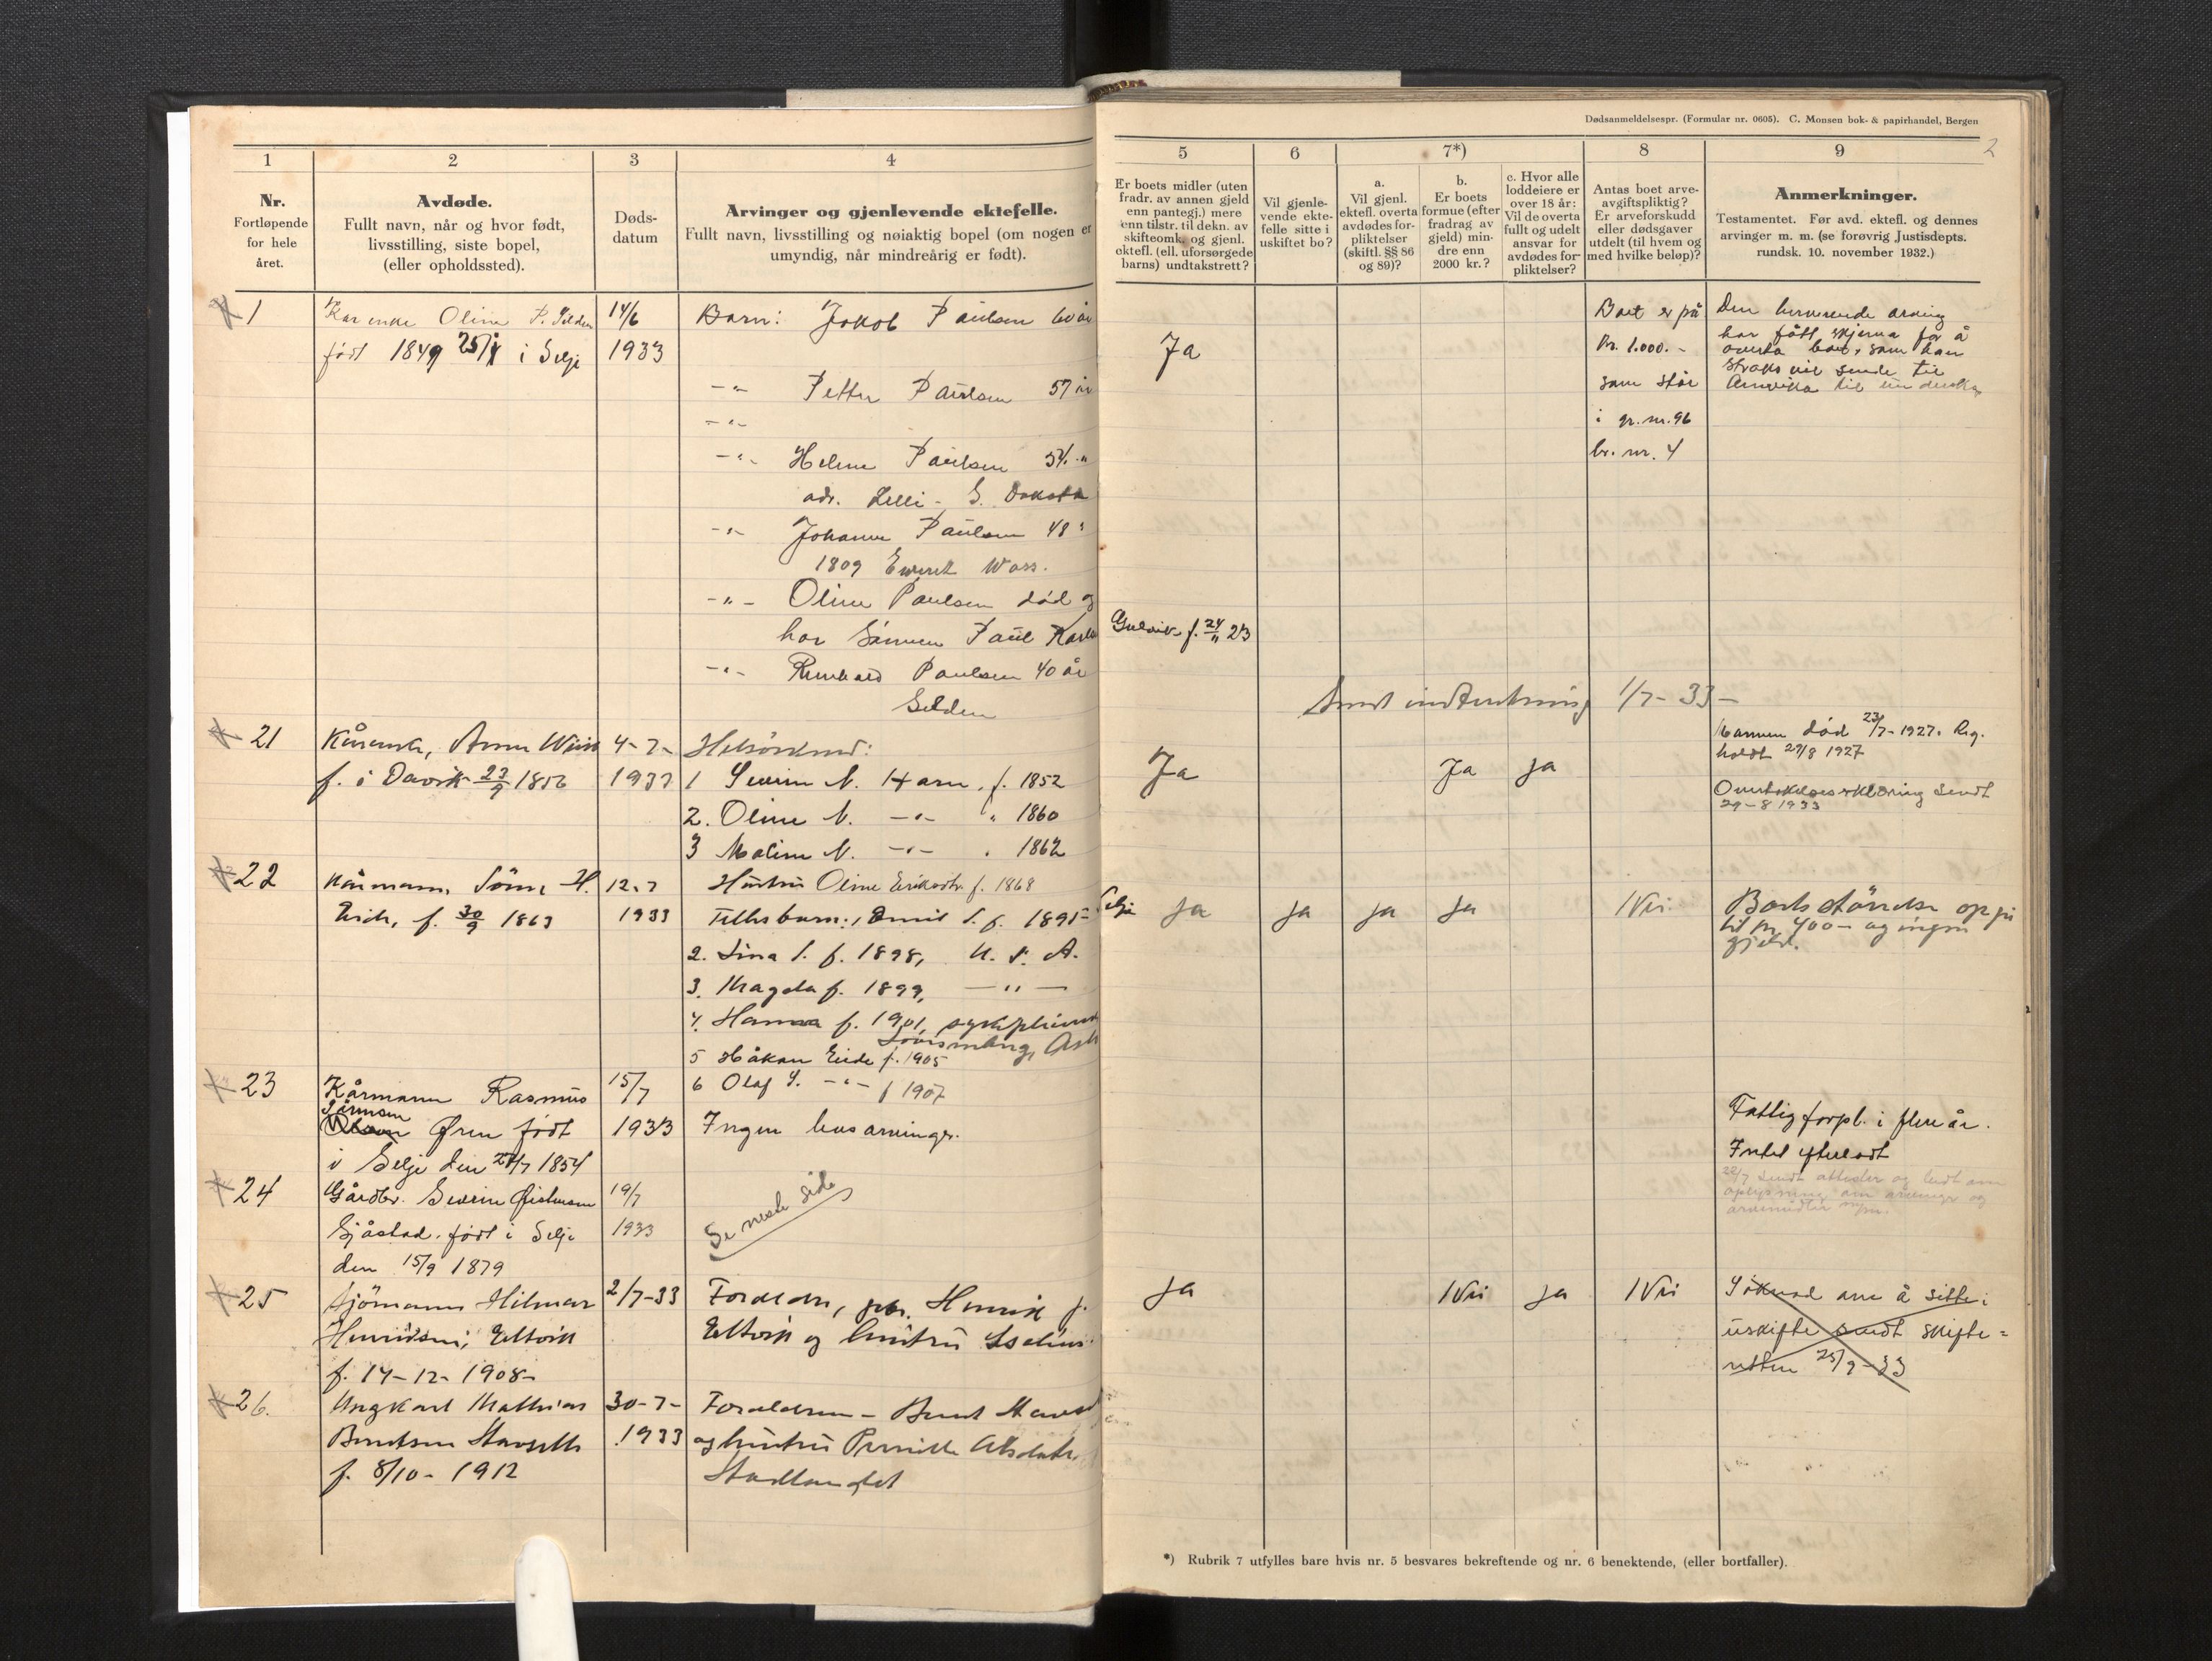 Dødsanmeldelsespr. (Formular nr. 0605). C. Monsen bok- & papirhandel, Bergen
2
1
2
3
4
5
6
7*)
8
9
Nr.
Fortløpende
for hele
året.
Avdøde.
Fullt navn, når og hvor født,
livsstilling, siste bopel,
(eller opholdssted).
Døds-
datum
Arvinger og gjenlevende ektefelle.
Fullt navn, livsstilling og nøiaktig bopel (om nogen er
umyndig, når mindreårig er født).
Er boets midler (uten
fradr. av annen gjeld
enn pantegj.) mere
enn tilstr. til dekn. av
skifteomk. og gjenl.
ektefl. (ell. uforsørgede
barns) undtakstrett?
Vil gjenle-
vende ekte-
felle sitte i
uskiftet bo?
a.
Vil gjenl.
ektefl. overta
avdødes for-
pliktelser
(skiftl. §§ 86
og 89)?
b.
Er boets
formue (efter
fradrag av
gjeld) min-
dre enn
2000 kr.?
c. Hvor alle
loddeiere er
over 18 år:
Vil de overta
fullt og udelt
ansvar for
avdødes for-
pliktelser?
Antas boet arve-
avgiftspliktig?
Er arveforskudd
eller dødsgaver
utdelt (til hvem og
med hvilke beløp)?
Anmerkninger.
Testamentet. Før avd. ektefl. og dennes
arvinger m. m. (se forøvrig Justisdepts.
rundsk. 10. november 1932.)
1
Kar enke Oline P. Silden
født 1849 i Selje
14/6
1933
Barn: Jakob Paulsen 60 år
-"- Petter Paulsen 57 år
-"-
-"- Helene Paulsen 54 "
adr. S. Dakota
-"- Johanne Paulsen 48 "
1809 Everet Wass.
-"- Oline Paulsen død og
har Sønnen Paul Karlsen
Gulvik f. 24/11 23
-"- Paulsen 40 år
Selden
Ja
Boet er på
kr. 1.000.-
som står
i gr. nr. 96
br. nr. 4
Den arving
har fått skjema for å
overta boet, som han
straks vil sende til
Amerika til
Sendt 1/7-33-
21
Kårenk, Anne
f. i Davik 23/9 1856
4-7-
1933
Helsøskend:
1 Severin N. Harn, f. 1852
2. Oline N. -"- " 1860
3 Maline N. -"- " 1862
Ja
Ja
Ja
Mannen død 23/7-1927. Reg.
holdt 27/8 1927
Overtakelseserklæring sendt
29-8 1933
22
Kårmann, Søren H.
Eide, f. 30/9 1863
12.7
1933
Hustru Oline Eriksdtr. f. 1868
Selje
Fellesbarn: 1 Emil S. f. 1895
2. Lina S. f. 1898, U. S. A.
3. Magda f. 1899, -"-
4. Hanna f. 1901,
5 Håkon Eide f. 1905
6 Olaf S. -"- f 1907
ja
ja
ja
ja
Nei
til kr 400- og ingen
gjeld.
23
Kårmann Rasmus
Øren født
i Selje den 1854
15/7
1933
Ingen livsarvinger.
Fattigforpl. i flere år.
Intet efterlatt
24
Gårdbr. Severin
Sjåstad, født i Selje
den 15/9 1879
19/7
1933
Se neste side
22/7 sendt attester og bedt om
oplysning om arvinger og
arvemidler
25
Sjömann Hilmar
Henriksen, Eltvik
f. 14-12-1908-
2/7-33
Foreldre, Henrik J.
Eltvik og hustru
ja
Nei
ja
Nei
Søknad om å sitte i
uskifte sendt skifte=
retten 25/9-33
26.
Ungkarl Mathias
Berntsen
f. 8/10-1912
30-7-
1933
Foreldrene - Bernt
og hustru Pernille
Stadlandet
*) Rubrik 7 utfylles bare hvis nr. 5 besvares bekreftende og nr. 6 benektende, (eller bortfaller).